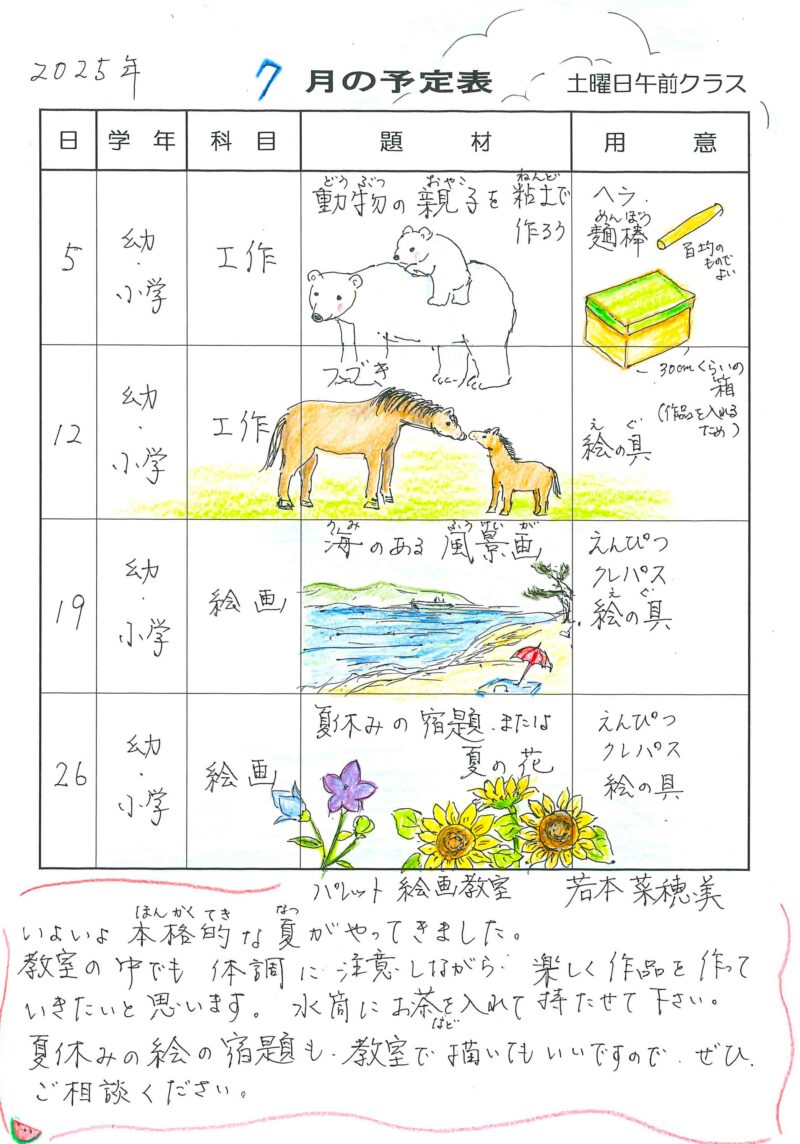 2025年 7 月の予定表 土曜日午前クラス
日 学年 科目 題材 用意
5 幼・小学 工作
どうぶつ おやこ ねんど
動物の親子を粘土で
作ろう
ヘラ、
めんぼう
麺棒
百均の
ものでよい
30cmくらいの
箱
(作品を入れる
ため)
12 幼・小学 工作
つづき
えぐ
絵の具
19 幼・小学 絵画
うみ ふうけいが
海のある風景画
えんぴつ
クレパス
えぐ
絵の具
26 幼・小学 絵画
夏休みの宿題、または
夏の花
えんぴつ
クレパス
絵の具
パレット絵画教室 若本菜穂美
ほんかくてき なつ
いよいよ本格的な夏がやってきました。
教室の中でも体調に注意しながら、楽しく作品を作って
いきたいと思います。水筒にお茶を入れて持たせて下さい。
など
夏休みの絵の宿題も、教室で描いてもいいですので、ぜひ、
ご相談ください。